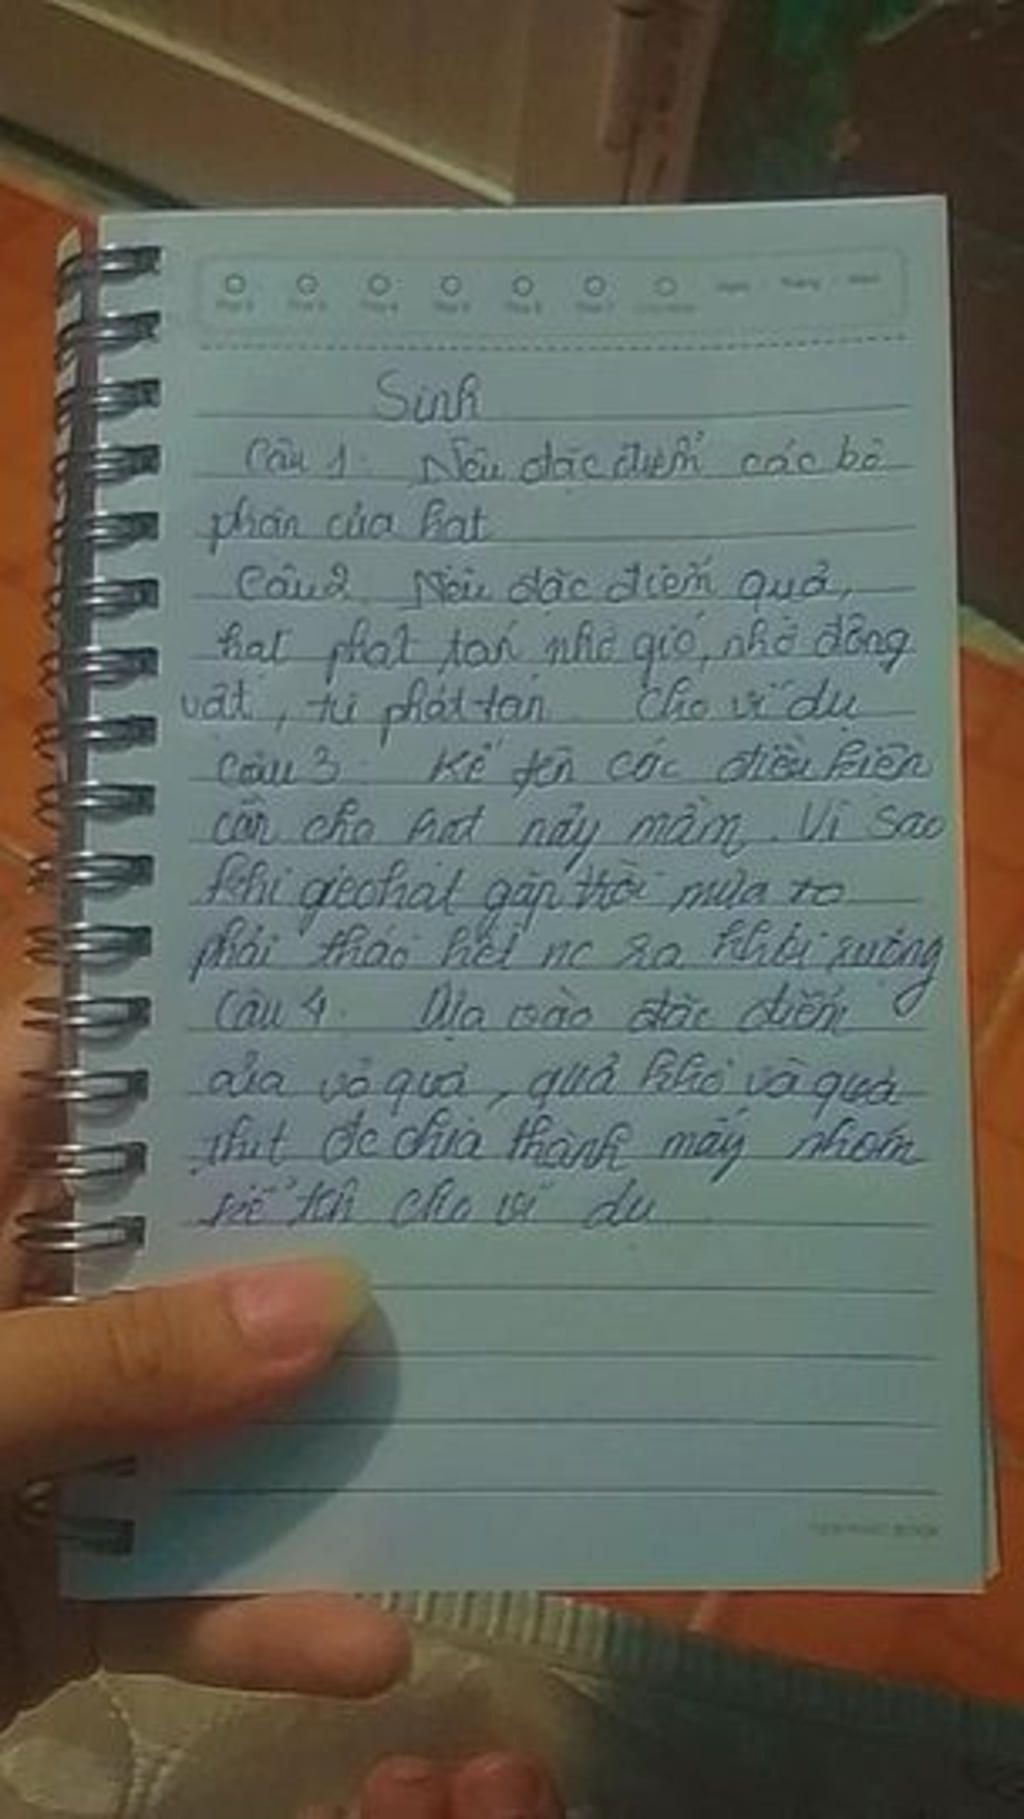 Sinh
Câu 1. Nêu đặc điểm các bộ
phận của hạt
Câu 2. Nêu đặc điểm quả,
hạt phát tán nhờ gió, nhờ động
vật, tự phát tán. Cho ví dụ
Câu 3. Kể tên các điều kiện
cần cho hạt nảy mầm. Vì sao
khi gieo hạt gặp trời mưa to
phải tháo hết nc ra khỏi ruộng
Câu 4. Dựa vào đặc điểm
của vỏ quả, quả khô và quả
thịt đc chia thành mấy nhóm
kể tên cho ví dụ